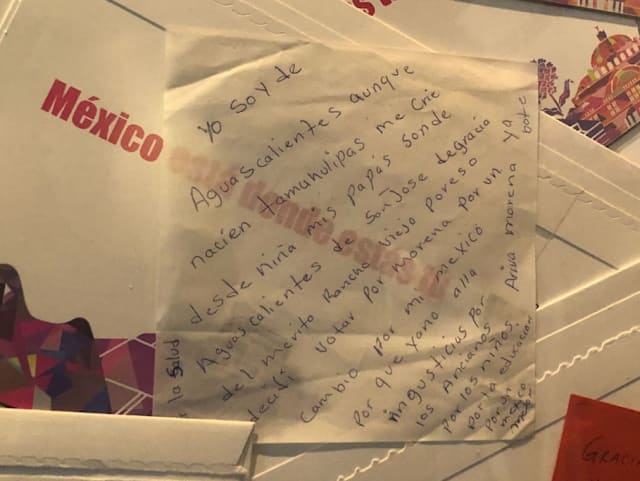 México
Yo soy de
Aguascalientes aunque
nacíen tamuhulipas me Crie
desde niña mis Papás sonde
Aguascalientes de SanJose deGracia
del merito Rancho Viejo Poreso
decidí Votar Por Morena Por un
Cambio Por mi mexicó
Por que Yano alla
ingusticias Por
los Ancianos
Por los niños
Por la educacion
Por un
mexico
mejor
la Salud
Ariva morena Ya
bote
GRACIA